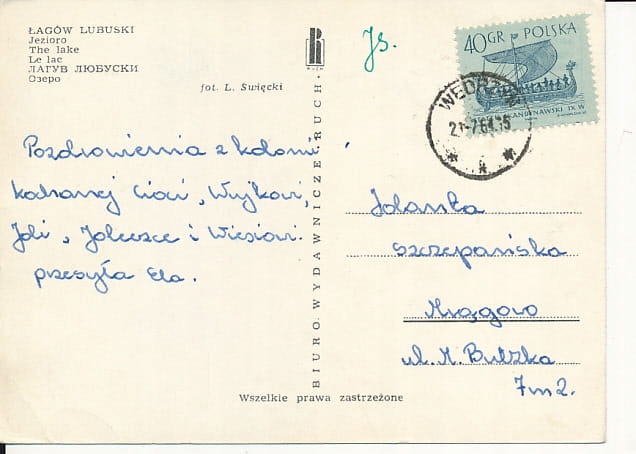 ŁAGÓW LUBUSKI
Jezioro
The lake
Le lac
ЛАГУВ ЛЮБУСКИ
Озеро
fot. L. Święcki
Js.
40 GR POLSKA
SKANDYNAWSKI IX W
21-7.64.15
Pozdrowienia z kolonii
kochanej Cioci, Wujkowi,
Joli, Joleczce i Wiesiowi.
przesyła Ela.
BIURO WYDAWNICZE „RUCH”
Jolanta
Szczepańska
ul. M. Buczka
7 m 2.
Wszelkie prawa zastrzeżone